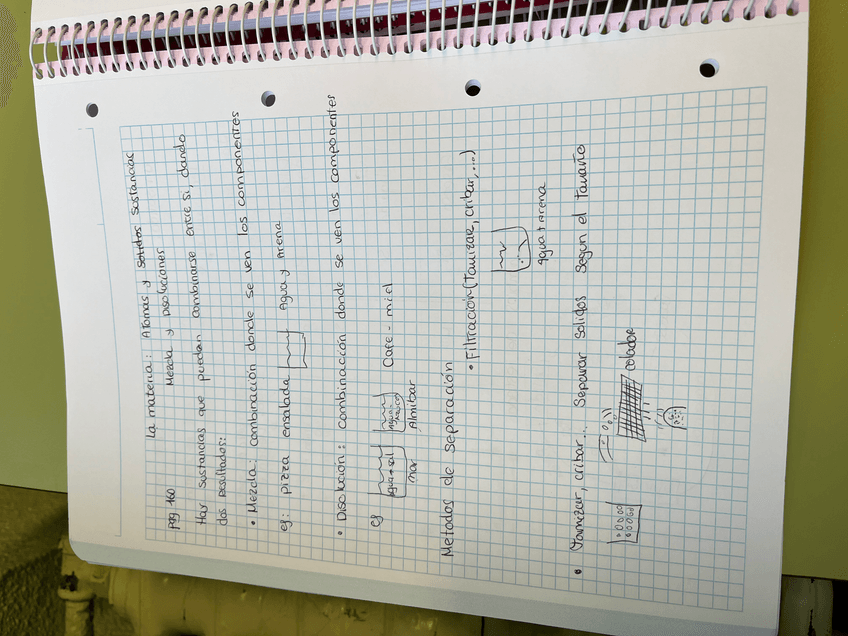 La materia: Atomos y solidos sustancias
pag 160 Mezcla y Disoluciones
Hay sustancias que pueden combinarse entre si, dando
dos resultados:
• Mezcla: combinación donde se ven los componentes
ej: pizza ensalada Agua y Arena
• Disolución: combinación donde se ven los componentes
ej Agua + sal Agua + Azucar Cafe - miel
mar Almibar
Metodos de separación
• Filtración (Tamizar, cribar, ...)
Agua + Arena
• Tamizar, cribar... Separar solidos segun el tamaño
colador